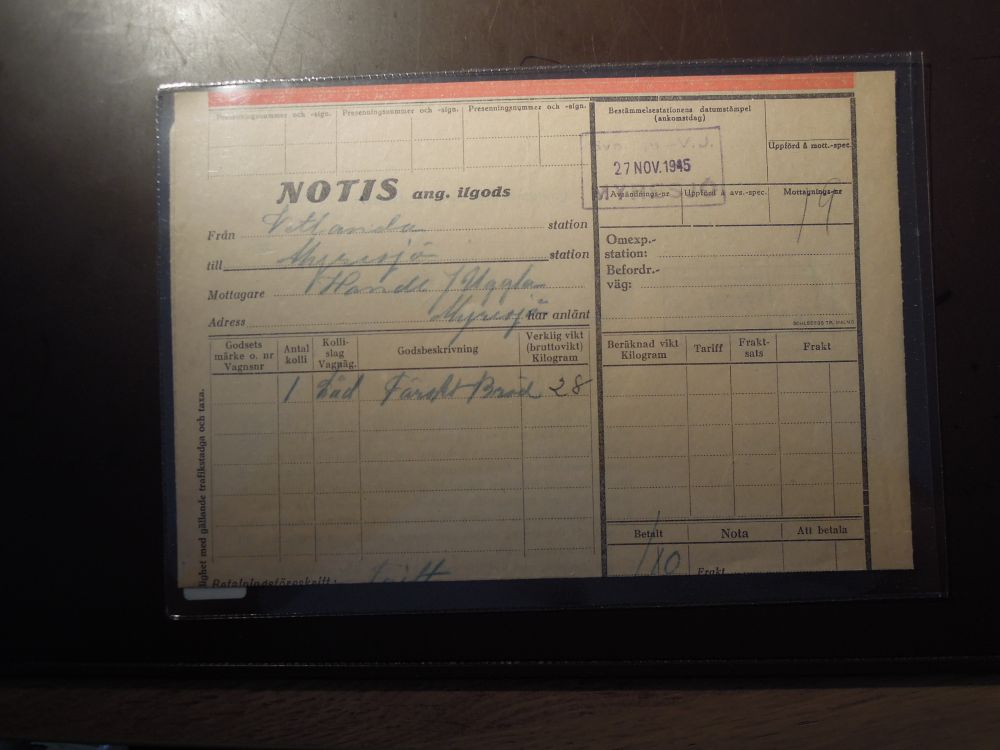 Presenningsnummer och -sign. Presenningsnummer och -sign. Presenningsnummer och -sign.
Bestämmelsestationens datumstämpel
(ankomstdag)
Uppförd å mott.-spec.
27 NOV. 1945
MYRESJÖ
Avsändnings-nr Uppförd å avs.-spec. Mottagnings-nr
19
NOTIS ang. ilgods
Från Vetlanda station
till Myresjö station
Mottagare Handl Uggla
Adress Myresjö har anlänt
Omexp.-
station:
Befordr.-
väg:
SOHLBERGS TR. MALMÖ
Godsets
märke o. nr
Vagnsnr
Antal
kolli
Kolli-
slag
Vagnäg.
Godsbeskrivning
Verklig vikt
(bruttovikt)
Kilogram
Beräknad vikt
Kilogram
Tariff
Frakt-
sats
Frakt
1 Låd Färskt Bröd 28
lighet med gällande trafikstadga och taxa.
Betalt Nota Att betala
Frakt
Betalningsföreskrift: